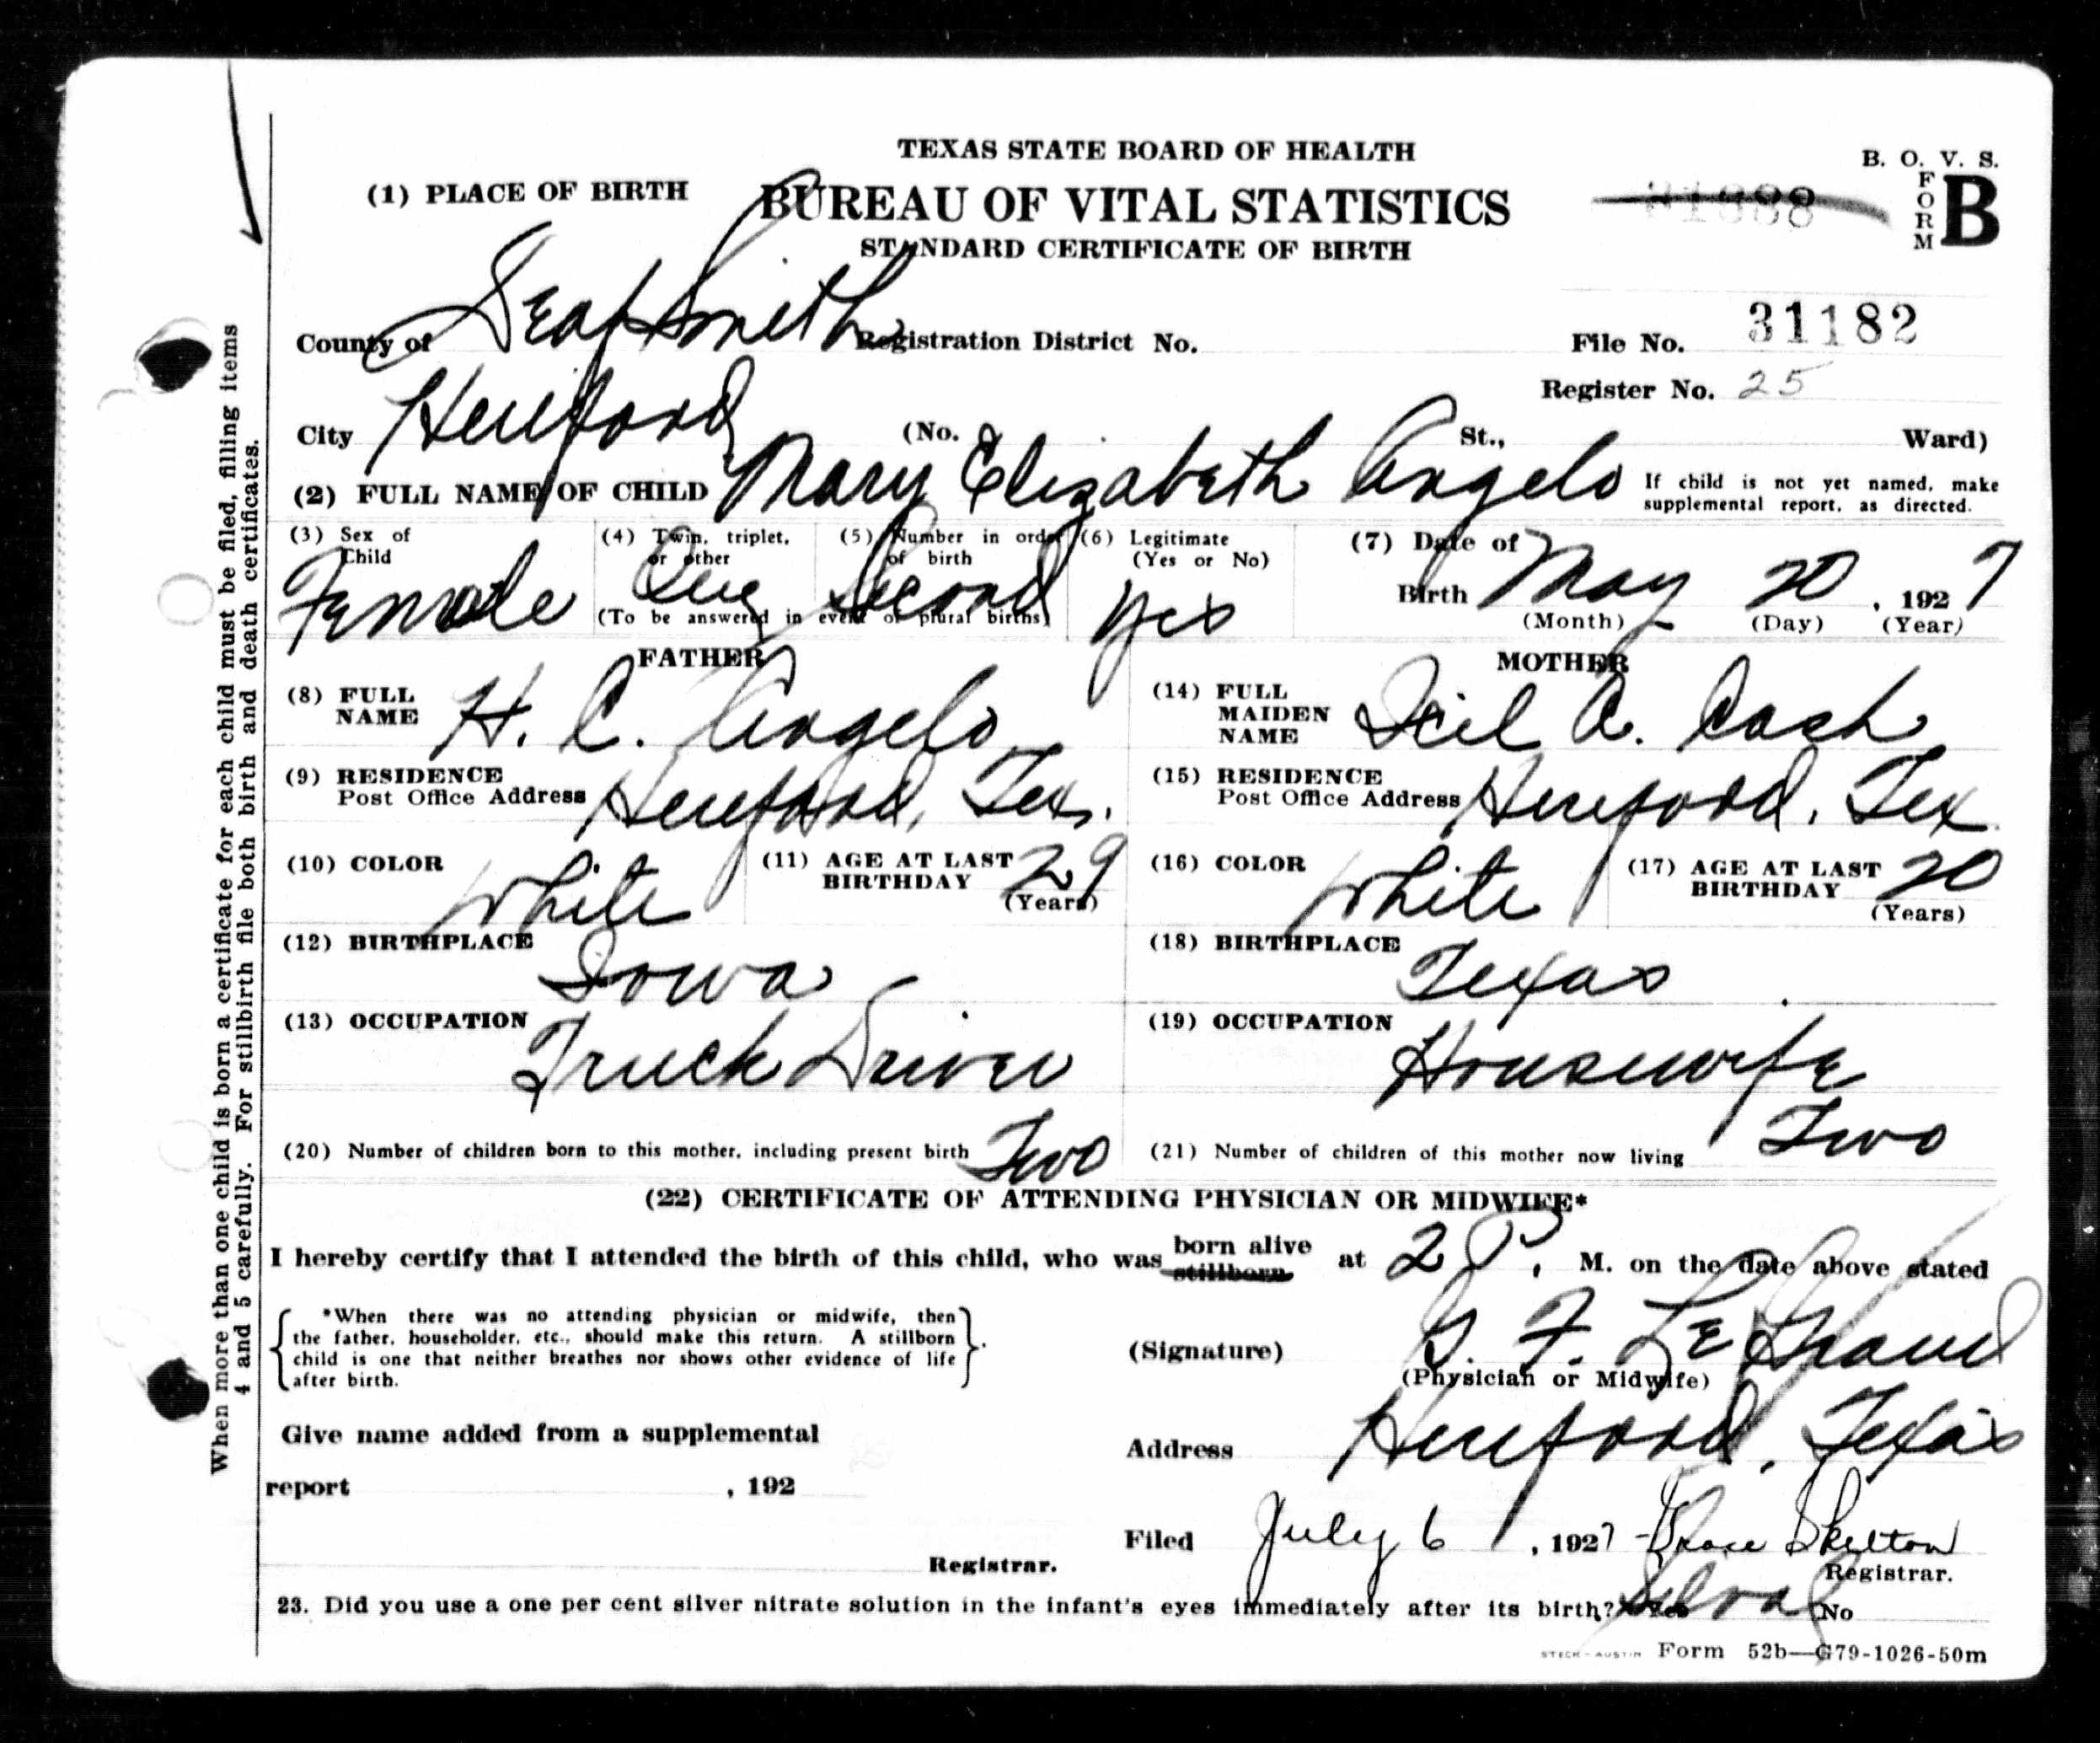 TEXAS STATE BOARD OF HEALTH
B. O. V. S.
(1) PLACE OF BIRTH
BUREAU OF VITAL STATISTICS
FORM B
STANDARD CERTIFICATE OF BIRTH
County of Deaf Smith Registration District No. File No. 31182
Register No. 25
City Hereford (No. St., Ward)
(2) FULL NAME OF CHILD Mary Elizabeth Angelo If child is not yet named, make
supplemental report, as directed.
(3) Sex of Child Female
(4) Twin, triplet, or other
(5) Number in order of birth Second
(To be answered in event of plural births)
(6) Legitimate (Yes or No) Yes
(7) Date of Birth May 20, 1927
(Month) (Day) (Year)
FATHER
(8) FULL NAME H. C. Angelo
(9) RESIDENCE Post Office Address Hereford, Tex.
(10) COLOR White
(11) AGE AT LAST BIRTHDAY 29 (Years)
(12) BIRTHPLACE Iowa
(13) OCCUPATION Truck Driver
MOTHER
(14) FULL MAIDEN NAME A. Cash
(15) RESIDENCE Post Office Address Hereford, Tex
(16) COLOR White
(17) AGE AT LAST BIRTHDAY 20 (Years)
(18) BIRTHPLACE Texas
(19) OCCUPATION Housewife
(20) Number of children born to this mother, including present birth Two
(21) Number of children of this mother now living Two
(22) CERTIFICATE OF ATTENDING PHYSICIAN OR MIDWIFE*
I hereby certify that I attended the birth of this child, who was born alive stillborn at 2 P. M. on the date above stated
*When there was no attending physician or midwife, then
the father, householder, etc., should make this return. A stillborn
child is one that neither breathes nor shows other evidence of life
after birth.
(Signature) G. F. Le Grand
(Physician or Midwife)
Give name added from a supplemental
report , 192
Address Hereford, Texas
Filed July 6, 1927 Grace Skelton
Registrar.
Registrar.
23. Did you use a one per cent silver nitrate solution in the infant's eyes immediately after its birth? Yes No
STECK-AUSTIN Form 52b—G79-1026-50m
When more than one child is born a certificate for each child must be filed, filling items
4 and 5 carefully. For stillbirth file both birth and death certificates.